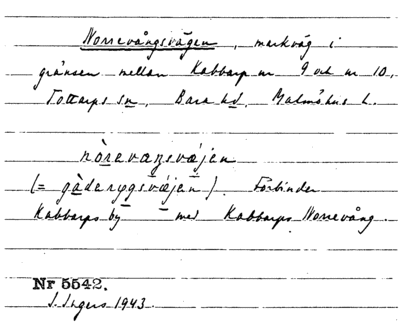 Norrevångsvägen, markväg i
gränsen mellan Kabbarp nr 9 och nr 10,
Tottarps sn, Bara hd, Malmöhus l.
nòrevaŋsvæjen
(= gàderyggsvæjen). Förbinder
Kabbarps by med Kabbarps Norrevång.
Nr 5542.
I. Ingers 1943.